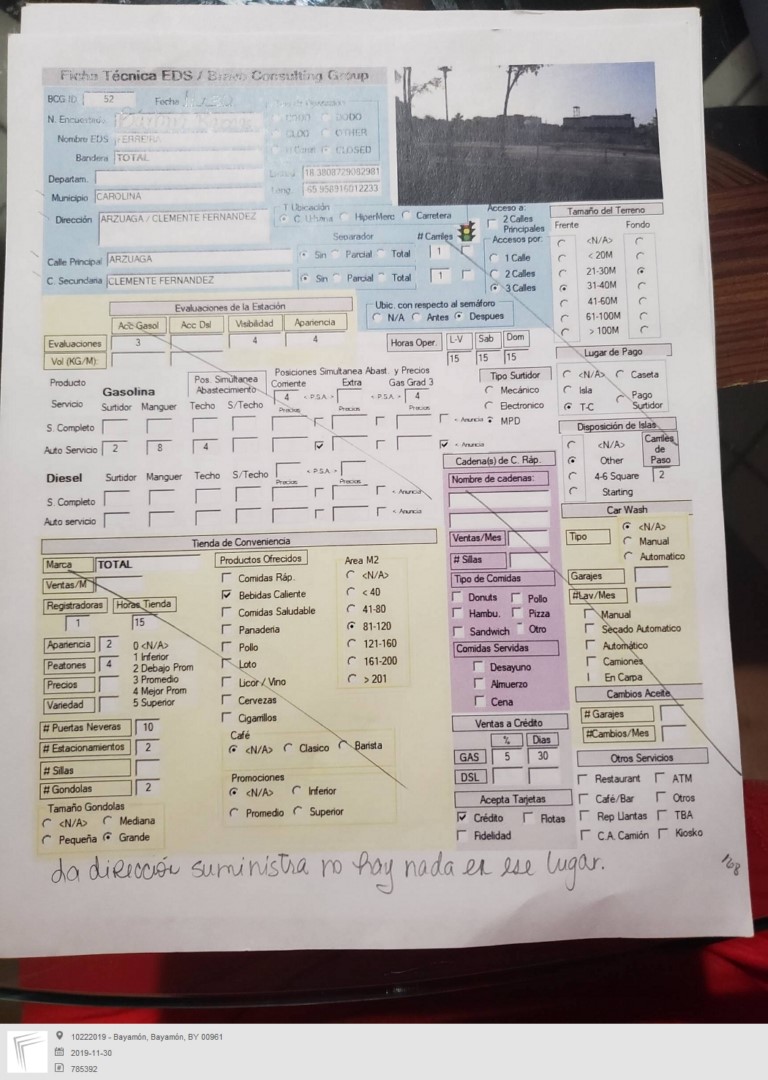 Ficha Técnica EDS / Bravo Consulting Group
BCG ID 52 Fecha
N. Encuestado
Nombre EDS
Bandera TOTAL
Departam.
Municipio CAROLINA
Dirección ARZUAGA / CLEMENTE FERNANDEZ
DODO
CLOG OTHER
CLOSED
Long.
T Ubicación
C. Urbana HiperMerc Carretera
Separador # Carriles
Calle Principal ARZUAGA Sin Parcial Total 1
C. Secundaria CLEMENTE FERNANDEZ Sin Parcial Total 1
Acceso a:
2 Calles
Principales
Accesos por:
1 Calle
2 Calles
3 Calles
Tamaño del Terreno
Frente Fondo
<N/A>
< 20M
21-30M
31-40M
41-60M
61-100M
> 100M
Evaluaciones de la Estación
Acc Gasol Acc Dsl Visibilidad Apariencia
Evaluaciones 3 4 4
Vol (KG/M):
Ubic. con respecto al semáforo
N/A Antes Despues
Horas Oper. L-V Sab Dom
15 15 15
Lugar de Pago
<N/A> Caseta
Isla Pago
T-C Surtidor
Producto Gasolina
Pos. Simultanea
Abastecimiento
Posiciones Simultanea Abast. y Precios
Corriente Extra Gas Grad 3
4 < P.S.A > < P.S.A > 4
Servicio Surtidor Manguer Techo S/Techo Precios Precios Precios
S. Completo < Anuncia
Auto Servicio 2 8 4 < Anuncia
Tipo Surtidor
Mecánico
Electronico
MPD
Disposición de Islas
<N/A>
Other
4-6 Square
Starting
Carriles
de
Paso
2
Diesel Surtidor Manguer Techo S/Techo < P.S.A >
Precios Precios
S. Completo < Anuncia
Auto servicio < Anuncia
Cadena(s) de C. Ráp.
Nombre de cadenas:
Ventas/Mes
# Sillas
Tipo de Comidas
Donuts Pollo
Hambu. Pizza
Sandwich Otro
Comidas Servidas
Desayuno
Almuerzo
Cena
Car Wash
Tipo <N/A>
Manual
Automatico
Garajes
#Lav/Mes
Manual
Secado Automatico
Automático
Camiones
En Carpa
Cambios Aceite
# Garajes
#Cambios/Mes
Tienda de Conveniencia
Marca TOTAL
Ventas/M
Registradoras Horas Tienda
1 15
Apariencia 2 0 <N/A>
1 Inferior
Peatones 4 2 Debajo Prom
Precios 3 Promedio
4 Mejor Prom
Variedad 5 Superior
# Puertas Neveras 10
# Estacionamientos 2
# Sillas
# Gondolas 2
Tamaño Gondolas
<N/A> Mediana
Pequeña Grande
Productos Ofrecidos
Comidas Ráp.
Bebidas Caliente
Comidas Saludable
Panaderia
Pollo
Loto
Licor / Vino
Cervezas
Cigarrillos
Area M2
<N/A>
< 40
41-80
81-120
121-160
161-200
> 201
Café
<N/A> Clasico Barista
Promociones
<N/A> Inferior
Promedio Superior
Ventas a Crédito
% Dias
GAS 5 30
DSL
Acepta Tarjetas
Crédito Flotas
Fidelidad
Otros Servicios
Restaurant ATM
Café/Bar Otros
Rep Llantas TBA
C.A. Camión Kiosko
La dirección suministra no hay nada en ese lugar.
168
10222019 - Bayamón, Bayamón, BY 00961
2019-11-30
785392